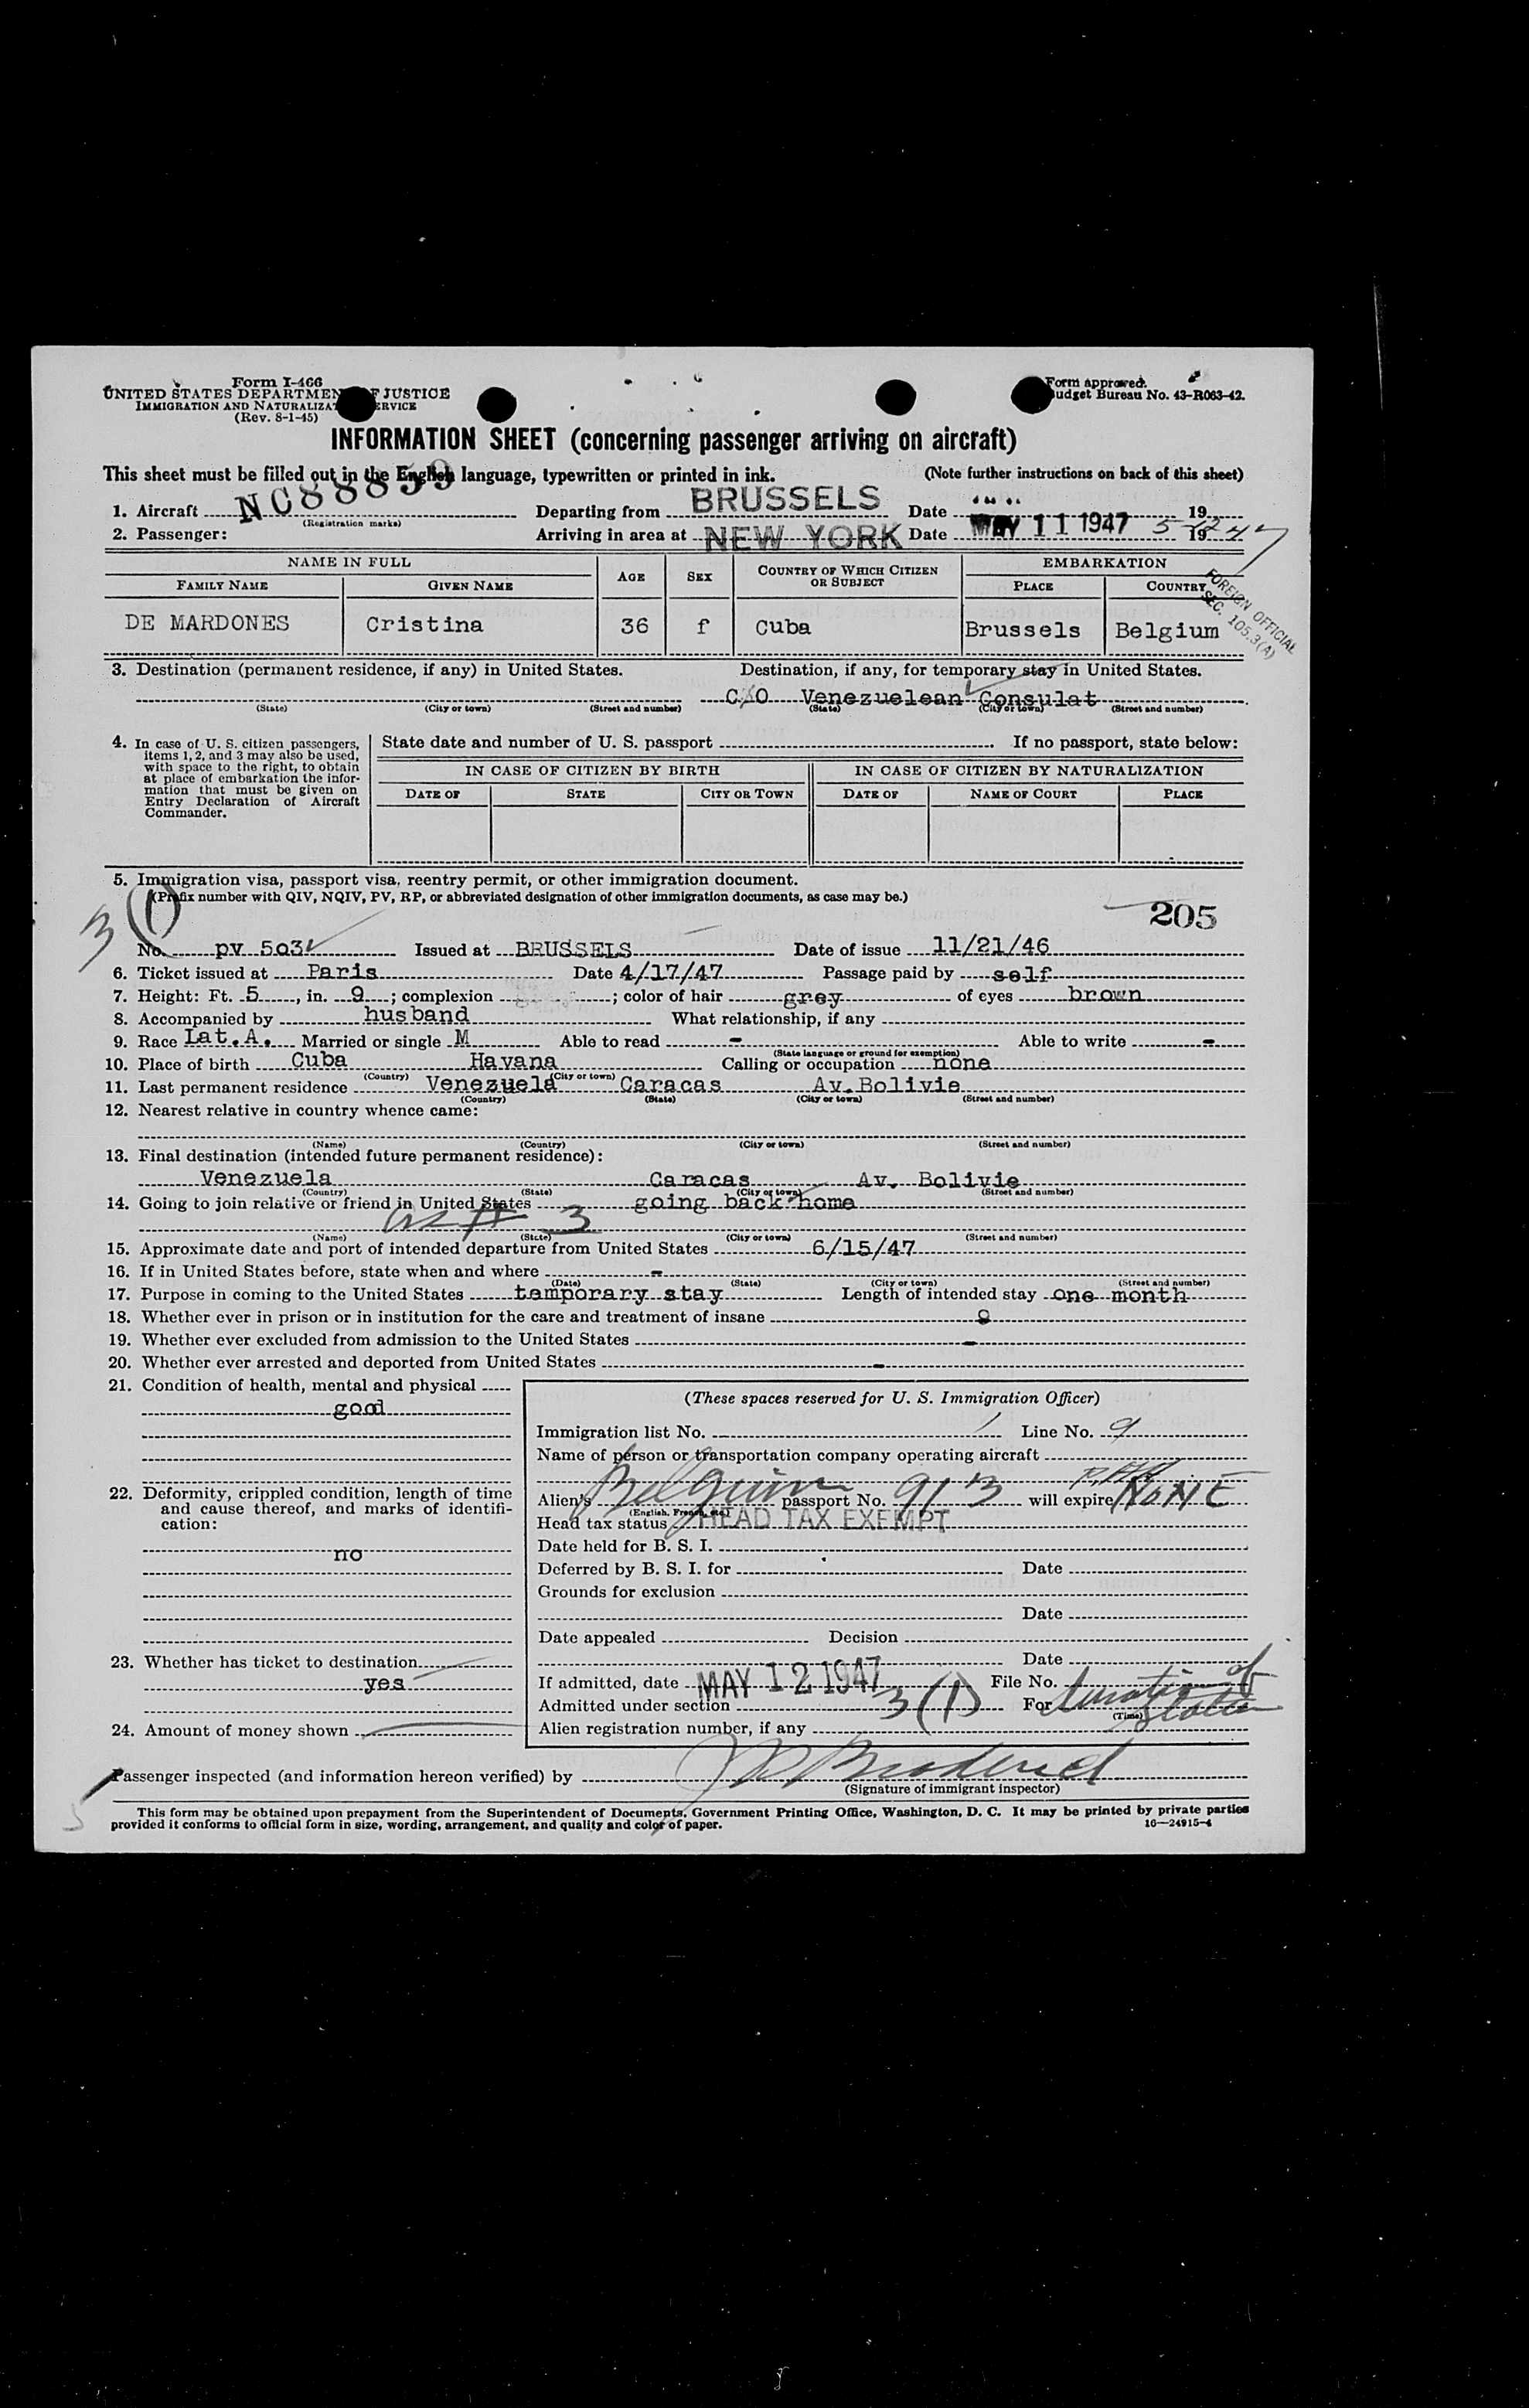 Form I-466
UNITED STATES DEPARTMENT OF JUSTICE
IMMIGRATION AND NATURALIZATION SERVICE
(Rev. 8-1-45)
Form approved.
Budget Bureau No. 43-R063-42.
INFORMATION SHEET (concerning passenger arriving on aircraft)
This sheet must be filled out in the English language, typewritten or printed in ink. (Note further instructions on back of this sheet)
1. Aircraft NC88859 Departing from BRUSSELS Date MAY 11 1947 19
(Registration marks)
2. Passenger: Arriving in area at NEW YORK Date 5-12 1947
NAME IN FULL AGE SEX COUNTRY OF WHICH CITIZEN OR SUBJECT EMBARKATION
FAMILY NAME GIVEN NAME PLACE COUNTRY
FOREIGN OFFICIAL
SEC. 105.3(A)
DE MARDONES Cristina 36 f Cuba Brussels Belgium
3. Destination (permanent residence, if any) in United States. Destination, if any, for temporary stay in United States.
C/O Venezuelean Consulat
(State) (City or town) (Street and number) (State) (City or town) (Street and number)
4. In case of U. S. citizen passengers, items 1, 2, and 3 may also be used, with space to the right, to obtain at place of embarkation the information that must be given on Entry Declaration of Aircraft Commander.
State date and number of U. S. passport If no passport, state below:
IN CASE OF CITIZEN BY BIRTH IN CASE OF CITIZEN BY NATURALIZATION
DATE OF STATE CITY OR TOWN DATE OF NAME OF COURT PLACE
5. Immigration visa, passport visa, reentry permit, or other immigration document.
(Prefix number with QIV, NQIV, PV, RP, or abbreviated designation of other immigration documents, as case may be.)
3 (1)
205
No. pv 503 Issued at BRUSSELS Date of issue 11/21/46
6. Ticket issued at Paris Date 4/17/47 Passage paid by self
7. Height: Ft. 5, in. 9; complexion ; color of hair grey of eyes brown
8. Accompanied by husband What relationship, if any
9. Race Lat.A. Married or single M Able to read - Able to write -
(State language or ground for exemption)
10. Place of birth Cuba Havana Calling or occupation none
(Country) (City or town)
11. Last permanent residence Venezuela Caracas Av.Bolivie
(Country) (State) (City or town) (Street and number)
12. Nearest relative in country whence came:
(Name) (Country) (City or town) (Street and number)
13. Final destination (intended future permanent residence):
Venezuela Caracas Av. Bolivie
(Country) (State) (City or town) (Street and number)
14. Going to join relative or friend in United States going back home
as # 3
(Name) (State) (City or town) (Street and number)
15. Approximate date and port of intended departure from United States 6/15/47
16. If in United States before, state when and where -
(Date) (State) (City or town) (Street and number)
17. Purpose in coming to the United States temporary stay Length of intended stay one month
18. Whether ever in prison or in institution for the care and treatment of insane
19. Whether ever excluded from admission to the United States -
20. Whether ever arrested and deported from United States -
21. Condition of health, mental and physical
good
22. Deformity, crippled condition, length of time and cause thereof, and marks of identification:
no
23. Whether has ticket to destination
yes
24. Amount of money shown
(These spaces reserved for U. S. Immigration Officer)
Immigration list No. 1 Line No. 9
Name of person or transportation company operating aircraft
Alien's Belguim passport No. 9113 will expire NONE
(English, French, etc.)
Head tax status HEAD TAX EXEMPT
Date held for B. S. I.
Deferred by B. S. I. for Date
Grounds for exclusion
Date
Date appealed Decision
Date
If admitted, date MAY 12 1947 File No.
Admitted under section 3(1) For duration of status
(Time)
Alien registration number, if any
Passenger inspected (and information hereon verified) by
(Signature of immigrant inspector)
This form may be obtained upon prepayment from the Superintendent of Documents, Government Printing Office, Washington, D. C. It may be printed by private parties
provided it conforms to official form in size, wording, arrangement, and quality and color of paper. 16—24915-4